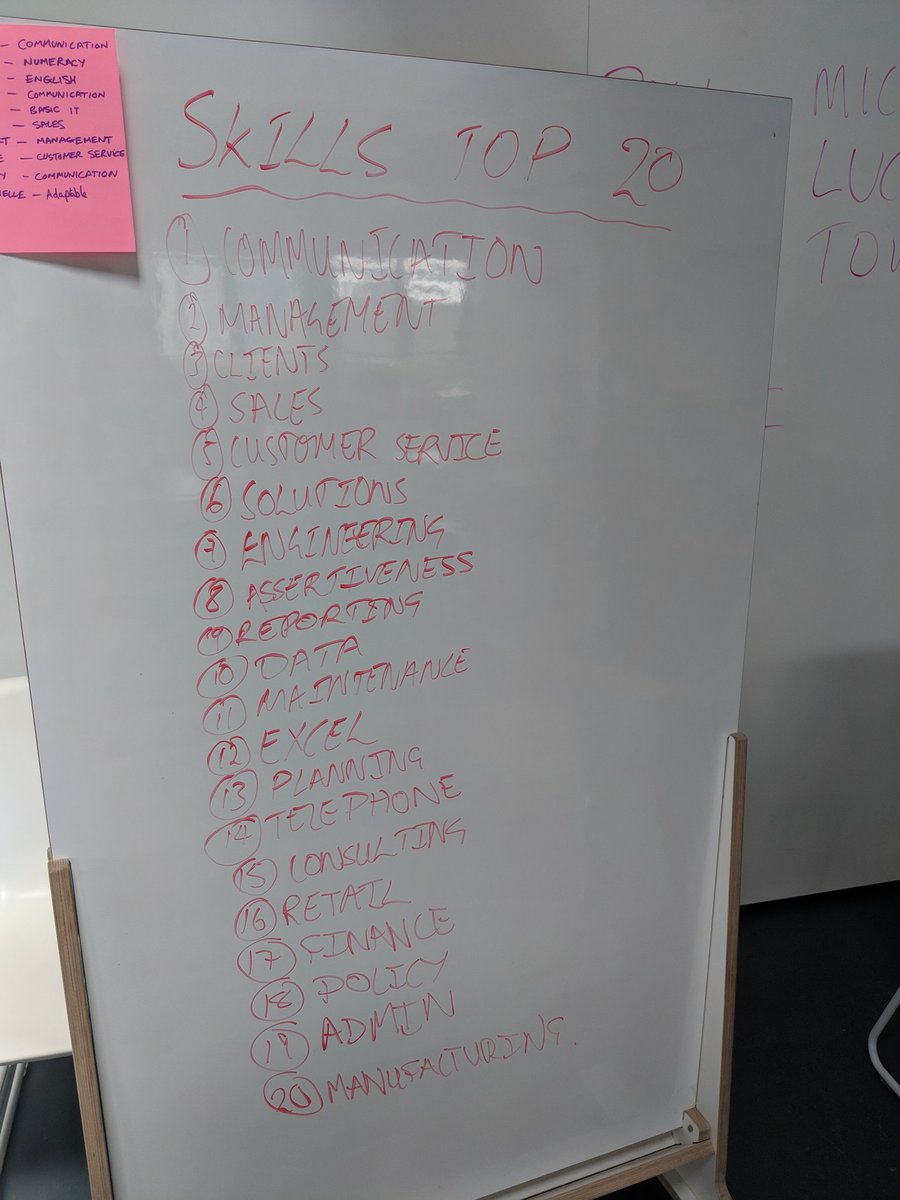 — COMMUNICATION
— NUMERACY
— ENGLISH
— COMMUNICATION
— BASIC IT
— SALES
— MANAGEMENT
— CUSTOMER SERVICE
— COMMUNICATION
— Adaptable
SKILLS TOP 20
1 COMMUNICATION
2 MANAGEMENT
3 CLIENTS
4 SALES
5 CUSTOMER SERVICE
6 SOLUTIONS
7 ENGINEERING
8 ASSERTIVENESS
9 REPORTING
10 DATA
11 MAINTENANCE
12 EXCEL
13 PLANNING
14 TELEPHONE
15 CONSULTING
16 RETAIL
17 FINANCE
18 POLICY
19 ADMIN
20 MANUFACTURING.
MIC
LUC